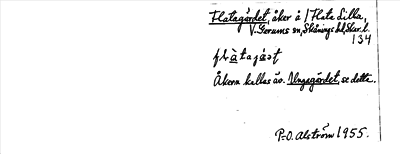 Flatagärdet, åker å 1 Flate Lilla,
V. Gerums sn, Skånings hd, Skar. l.
134
Åkern kallas äv. Ungagärdet, se detta.
P.O. Alström 1955.